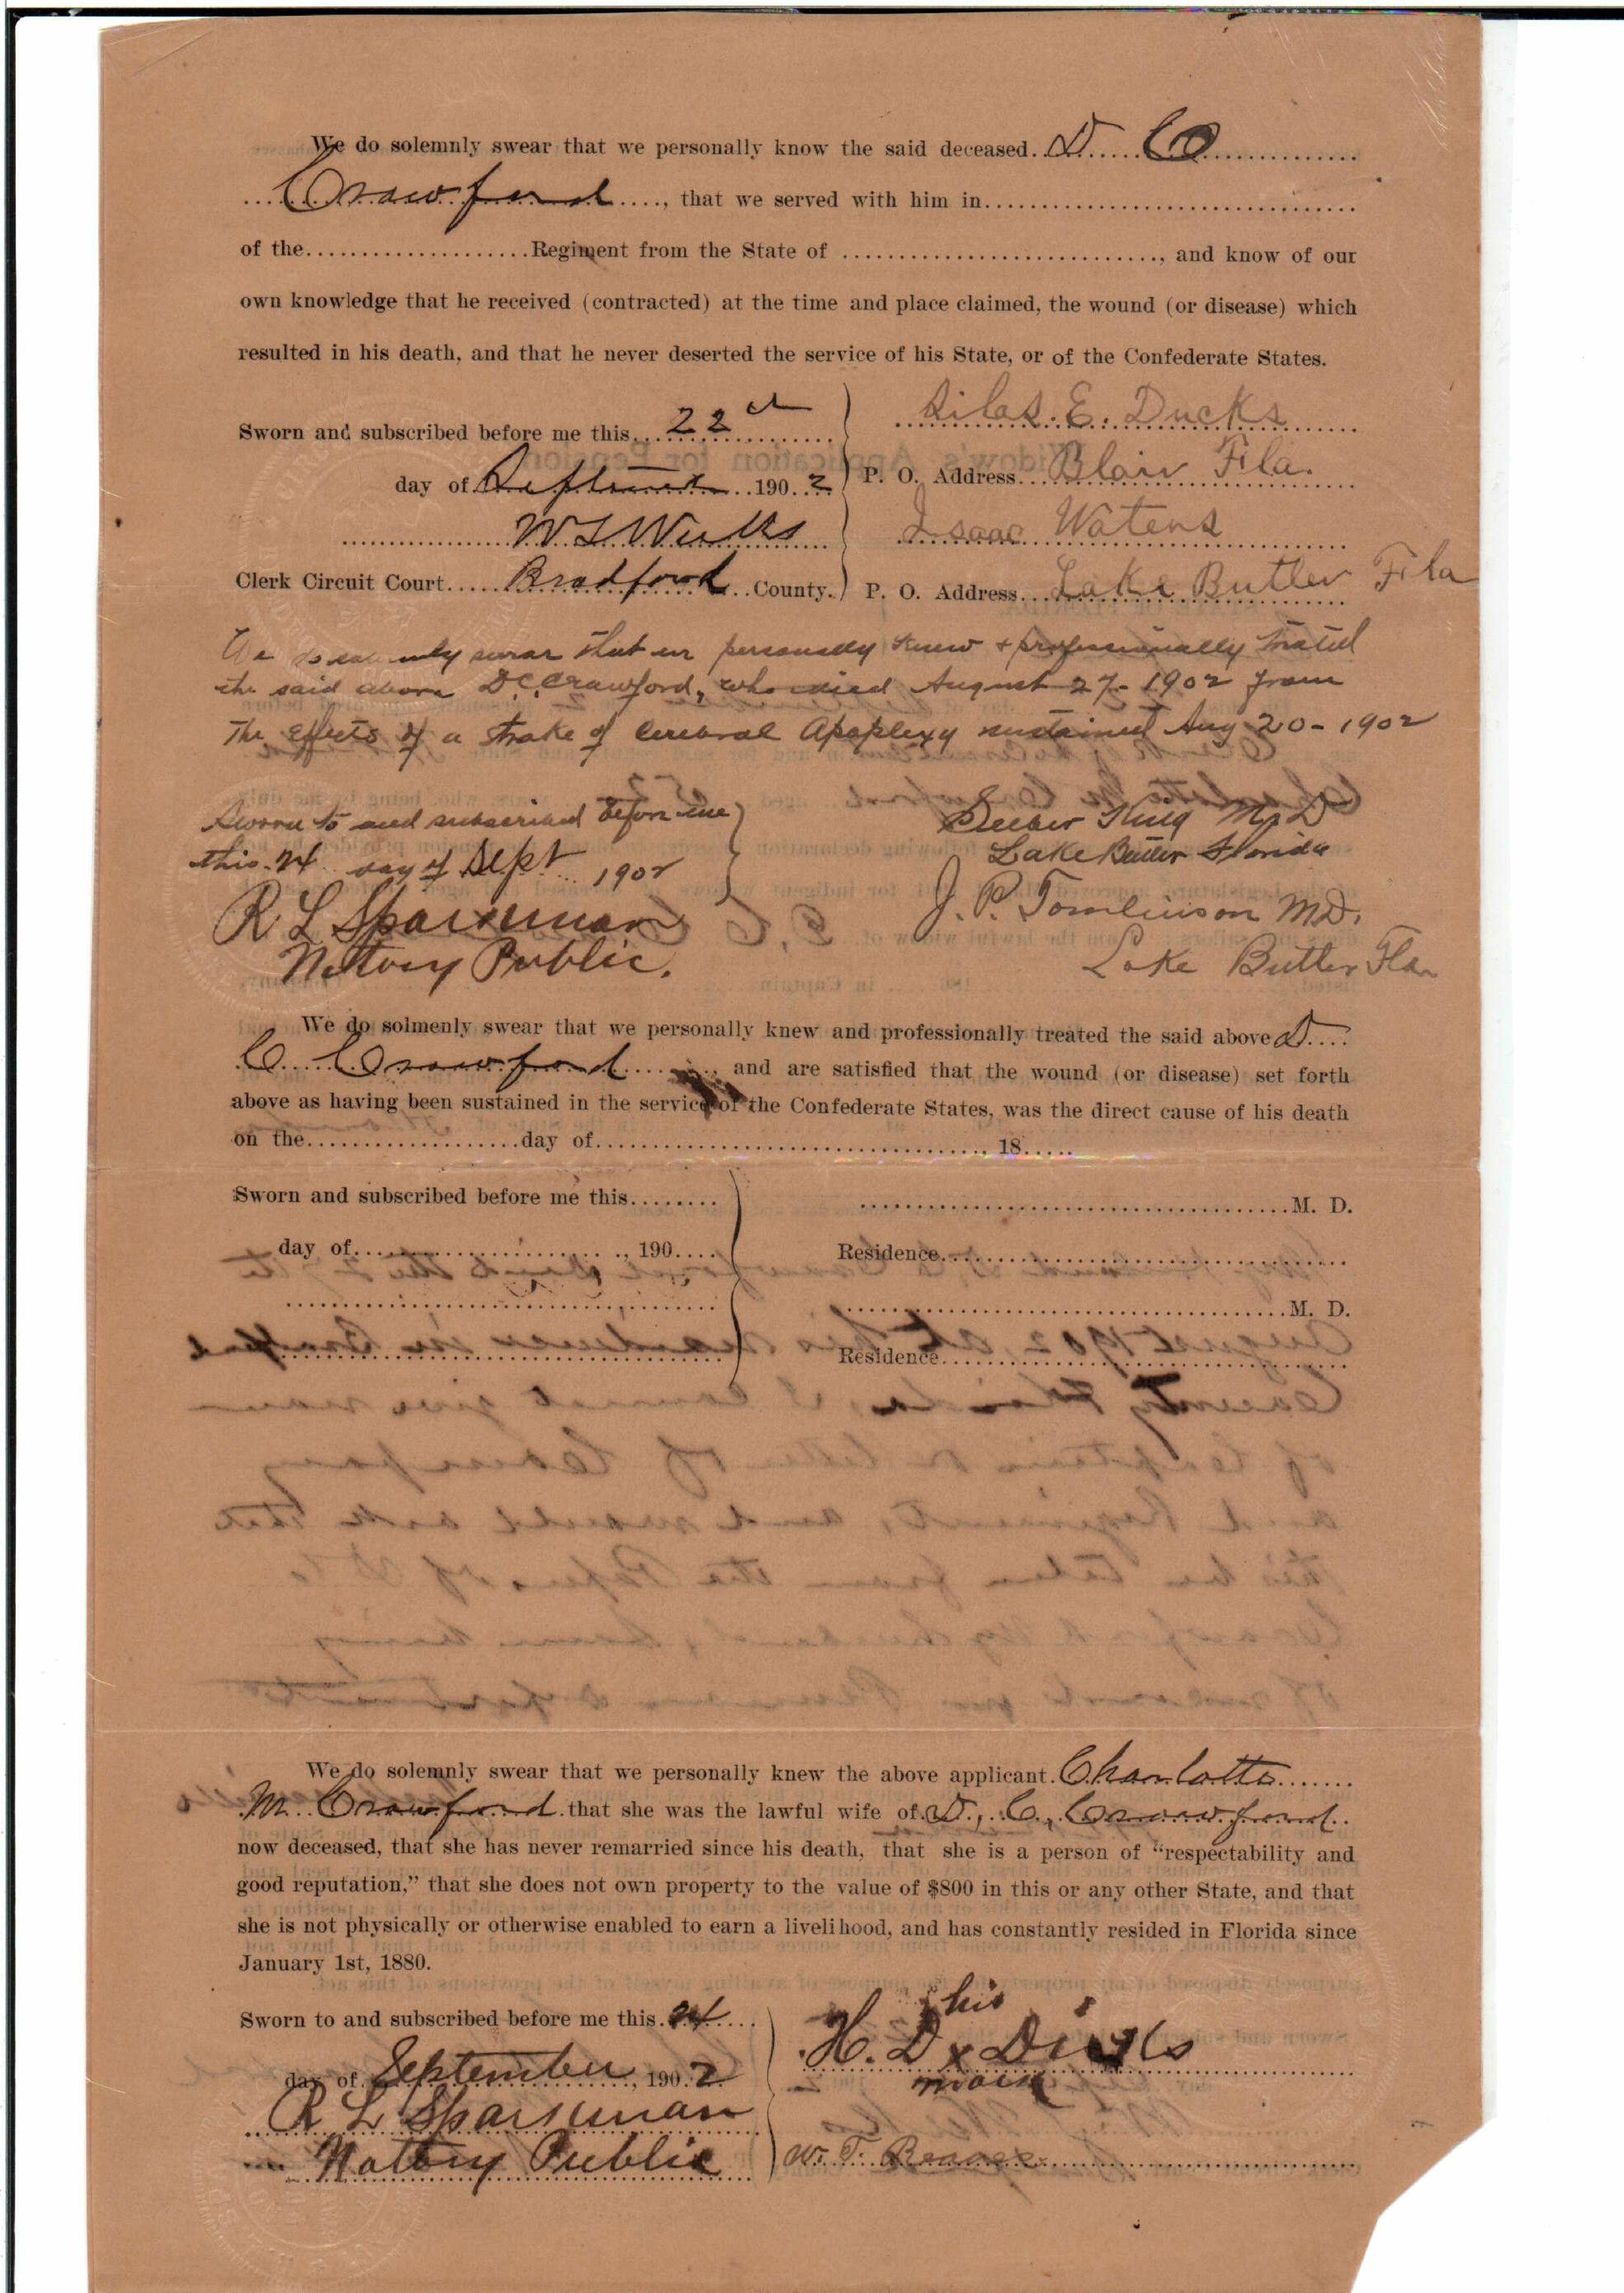 We do solemnly swear that we personally know the said deceased D C
Crawford, that we served with him in
of the Regiment from the State of , and know of our
own knowledge that he received (contracted) at the time and place claimed, the wound (or disease) which
resulted in his death, and that he never deserted the service of his State, or of the Confederate States.
Sworn and subscribed before me this 22d
day of September 1902
W S Weeks
Clerk Circuit Court Bradford County.
Silas. E. Ducks
P. O. Address Blair Fla.
Isaac Waters
P. O. Address Lake Butler Fla
We do solemnly swear that we personally knew + professionally treated
the said above D C. Crawford, who died August 27- 1902 from
The effects of a stroke of Cerebral Apoplexy sustained Aug 20- 1902
Sworn to and subscribed before me
this 24 day of Sept 1902
R L Sparkman
Notary Public.
King M. D
Lake Butler Florida
J. P. Tomlinson M.D.
Lake Butler Fla
We do solmenly swear that we personally knew and professionally treated the said above D
C Crawford and are satisfied that the wound (or disease) set forth
above as having been sustained in the service of the Confederate States, was the direct cause of his death
on the day of , 18
Sworn and subscribed before me this
day of , 190
M. D.
Residence
M. D.
Residence
We do solemnly swear that we personally knew the above applicant Charlotte
M Crawford that she was the lawful wife of D, C, Crawford
now deceased, that she has never remarried since his death, that she is a person of “respectability and
good reputation,” that she does not own property to the value of $800 in this or any other State, and that
she is not physically or otherwise enabled to earn a livelihood, and has constantly resided in Florida since
January 1st, 1880.
Sworn to and subscribed before me this 24
day of September, 1902
R L Sparkman
Notary Public
his
H. D x Dicks
mark
W. T.